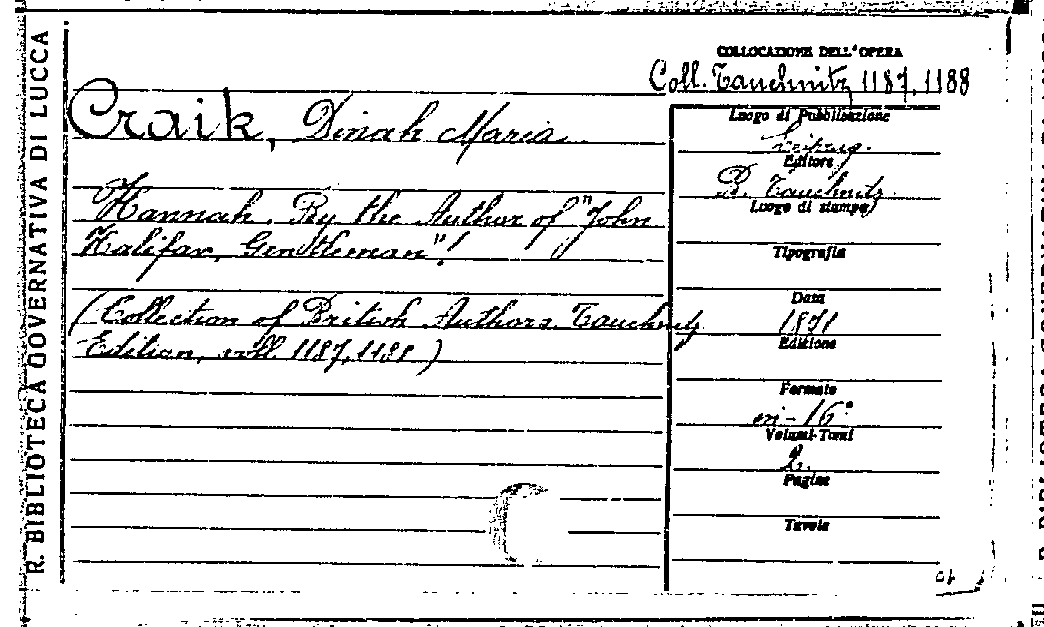 R. BIBLIOTECA GOVERNATIVA DI LUCCA
COLLOCAZIONE DELL'OPERA
Coll. Tauchnitz 1187, 1188
Craik, Dinah Maria
Hannah. By the Author of "John
Halifax, Gentleman"!
(Collection of British Authors. Tauchnitz
Edition, voll. 1187, 1188)
Luogo di Pubblicazione
Leipzig.
Editore
B. Tauchnitz
Luogo di stampa
Tipografia
Data
1871
Edizione
Formato
in-16°
Volumi-Tomi
2.
Pagine
Tavole